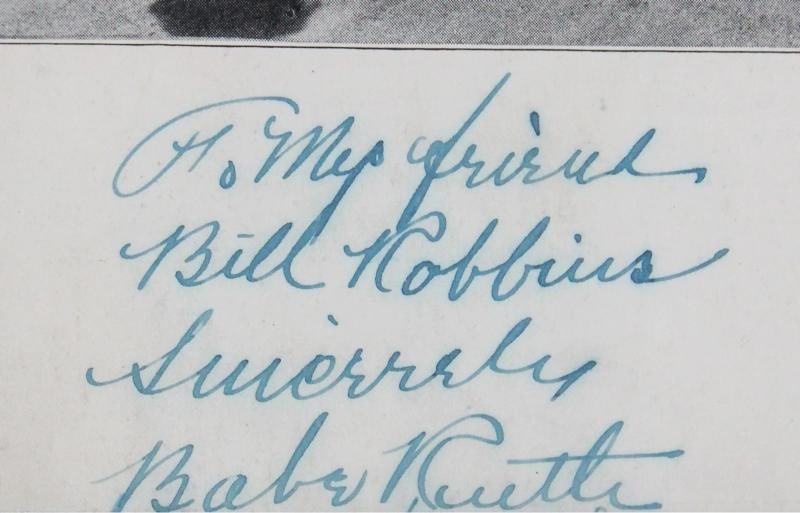 To My friend
Bill Robbins
Sincerely
Babe Ruth